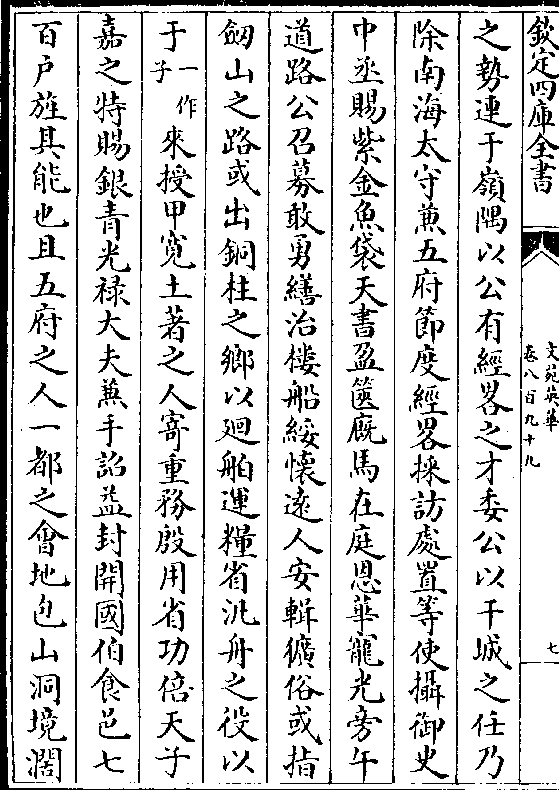 欽定四庫全書
文苑英華
卷八百九十九
七
之勢連于嶺隅以公有經畧之才委公以干城之任乃
除南海太守兼五府節度經畧採訪處置等使攝御史
中丞賜紫金魚袋天書盈篋廐馬在庭恩華寵光旁午
道路公召募敢勇繕治樓船綏懷遠人安輯獷俗或指
劔山之路或出銅柱之鄉以廻舶運糧省汎舟之役以
于一作子來授甲寛土著之人寄重務殷用省功倍天子
嘉之特賜銀青光禄大夫兼手詔益封開國伯食邑七
百户旌其能也且五府之人一都之會地包山洞境濶